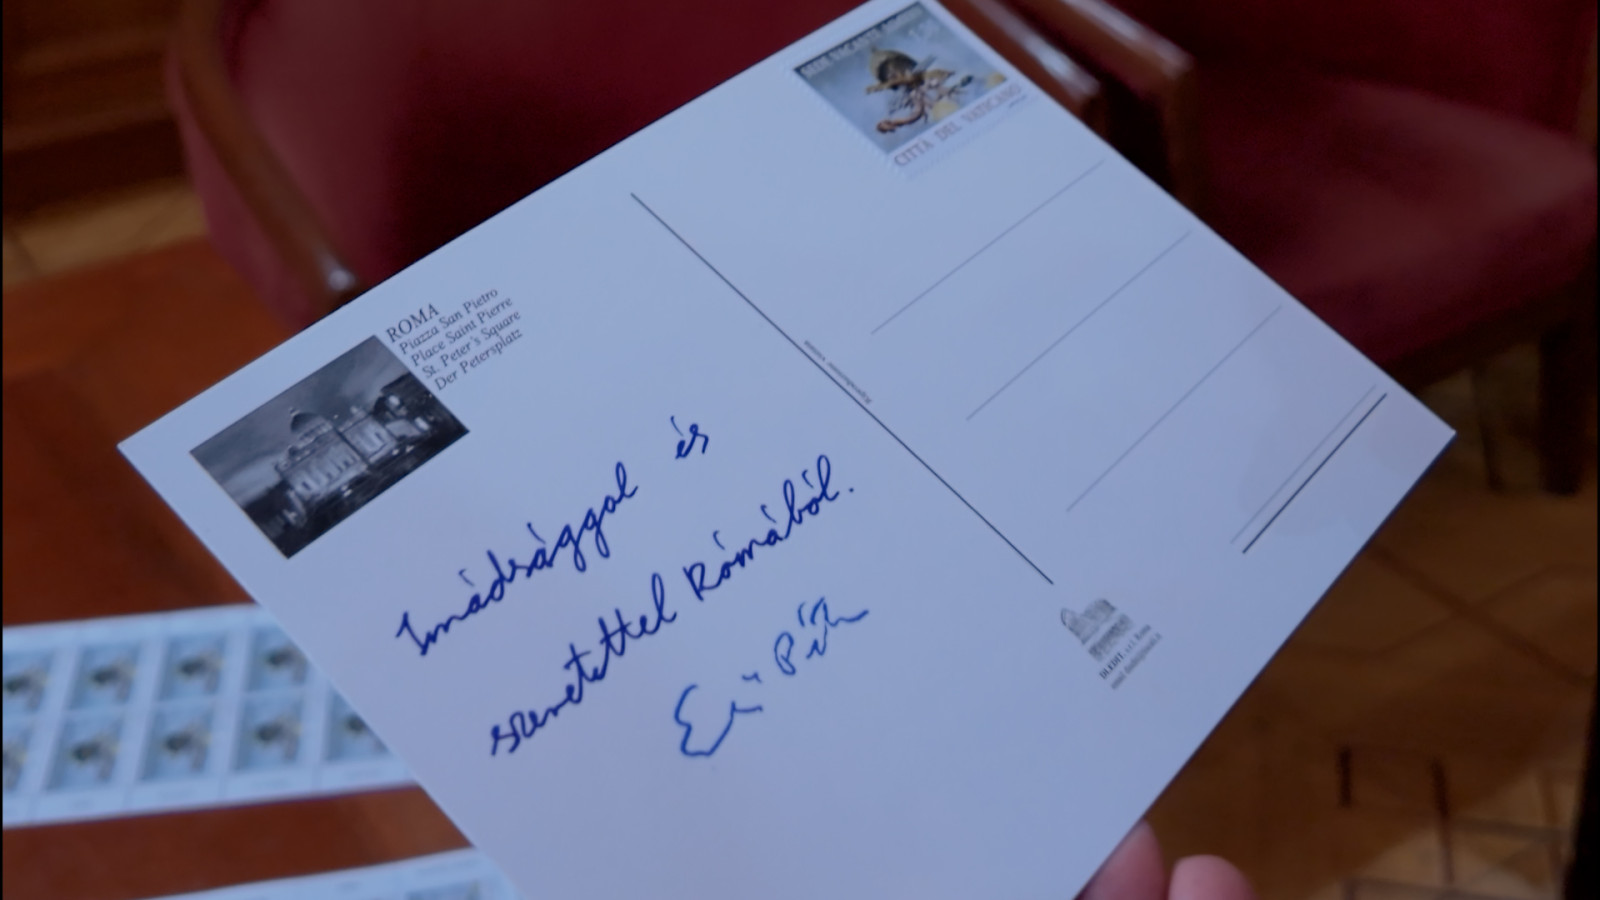 SEDE VACANTE
CITTÀ DEL VATICANO
ROMA
Piazza San Pietro
Place Saint Pierre
St. Peter's Square
Der Petersplatz
Imádsággal és
szeretettel Rómából.
Erdő Péter